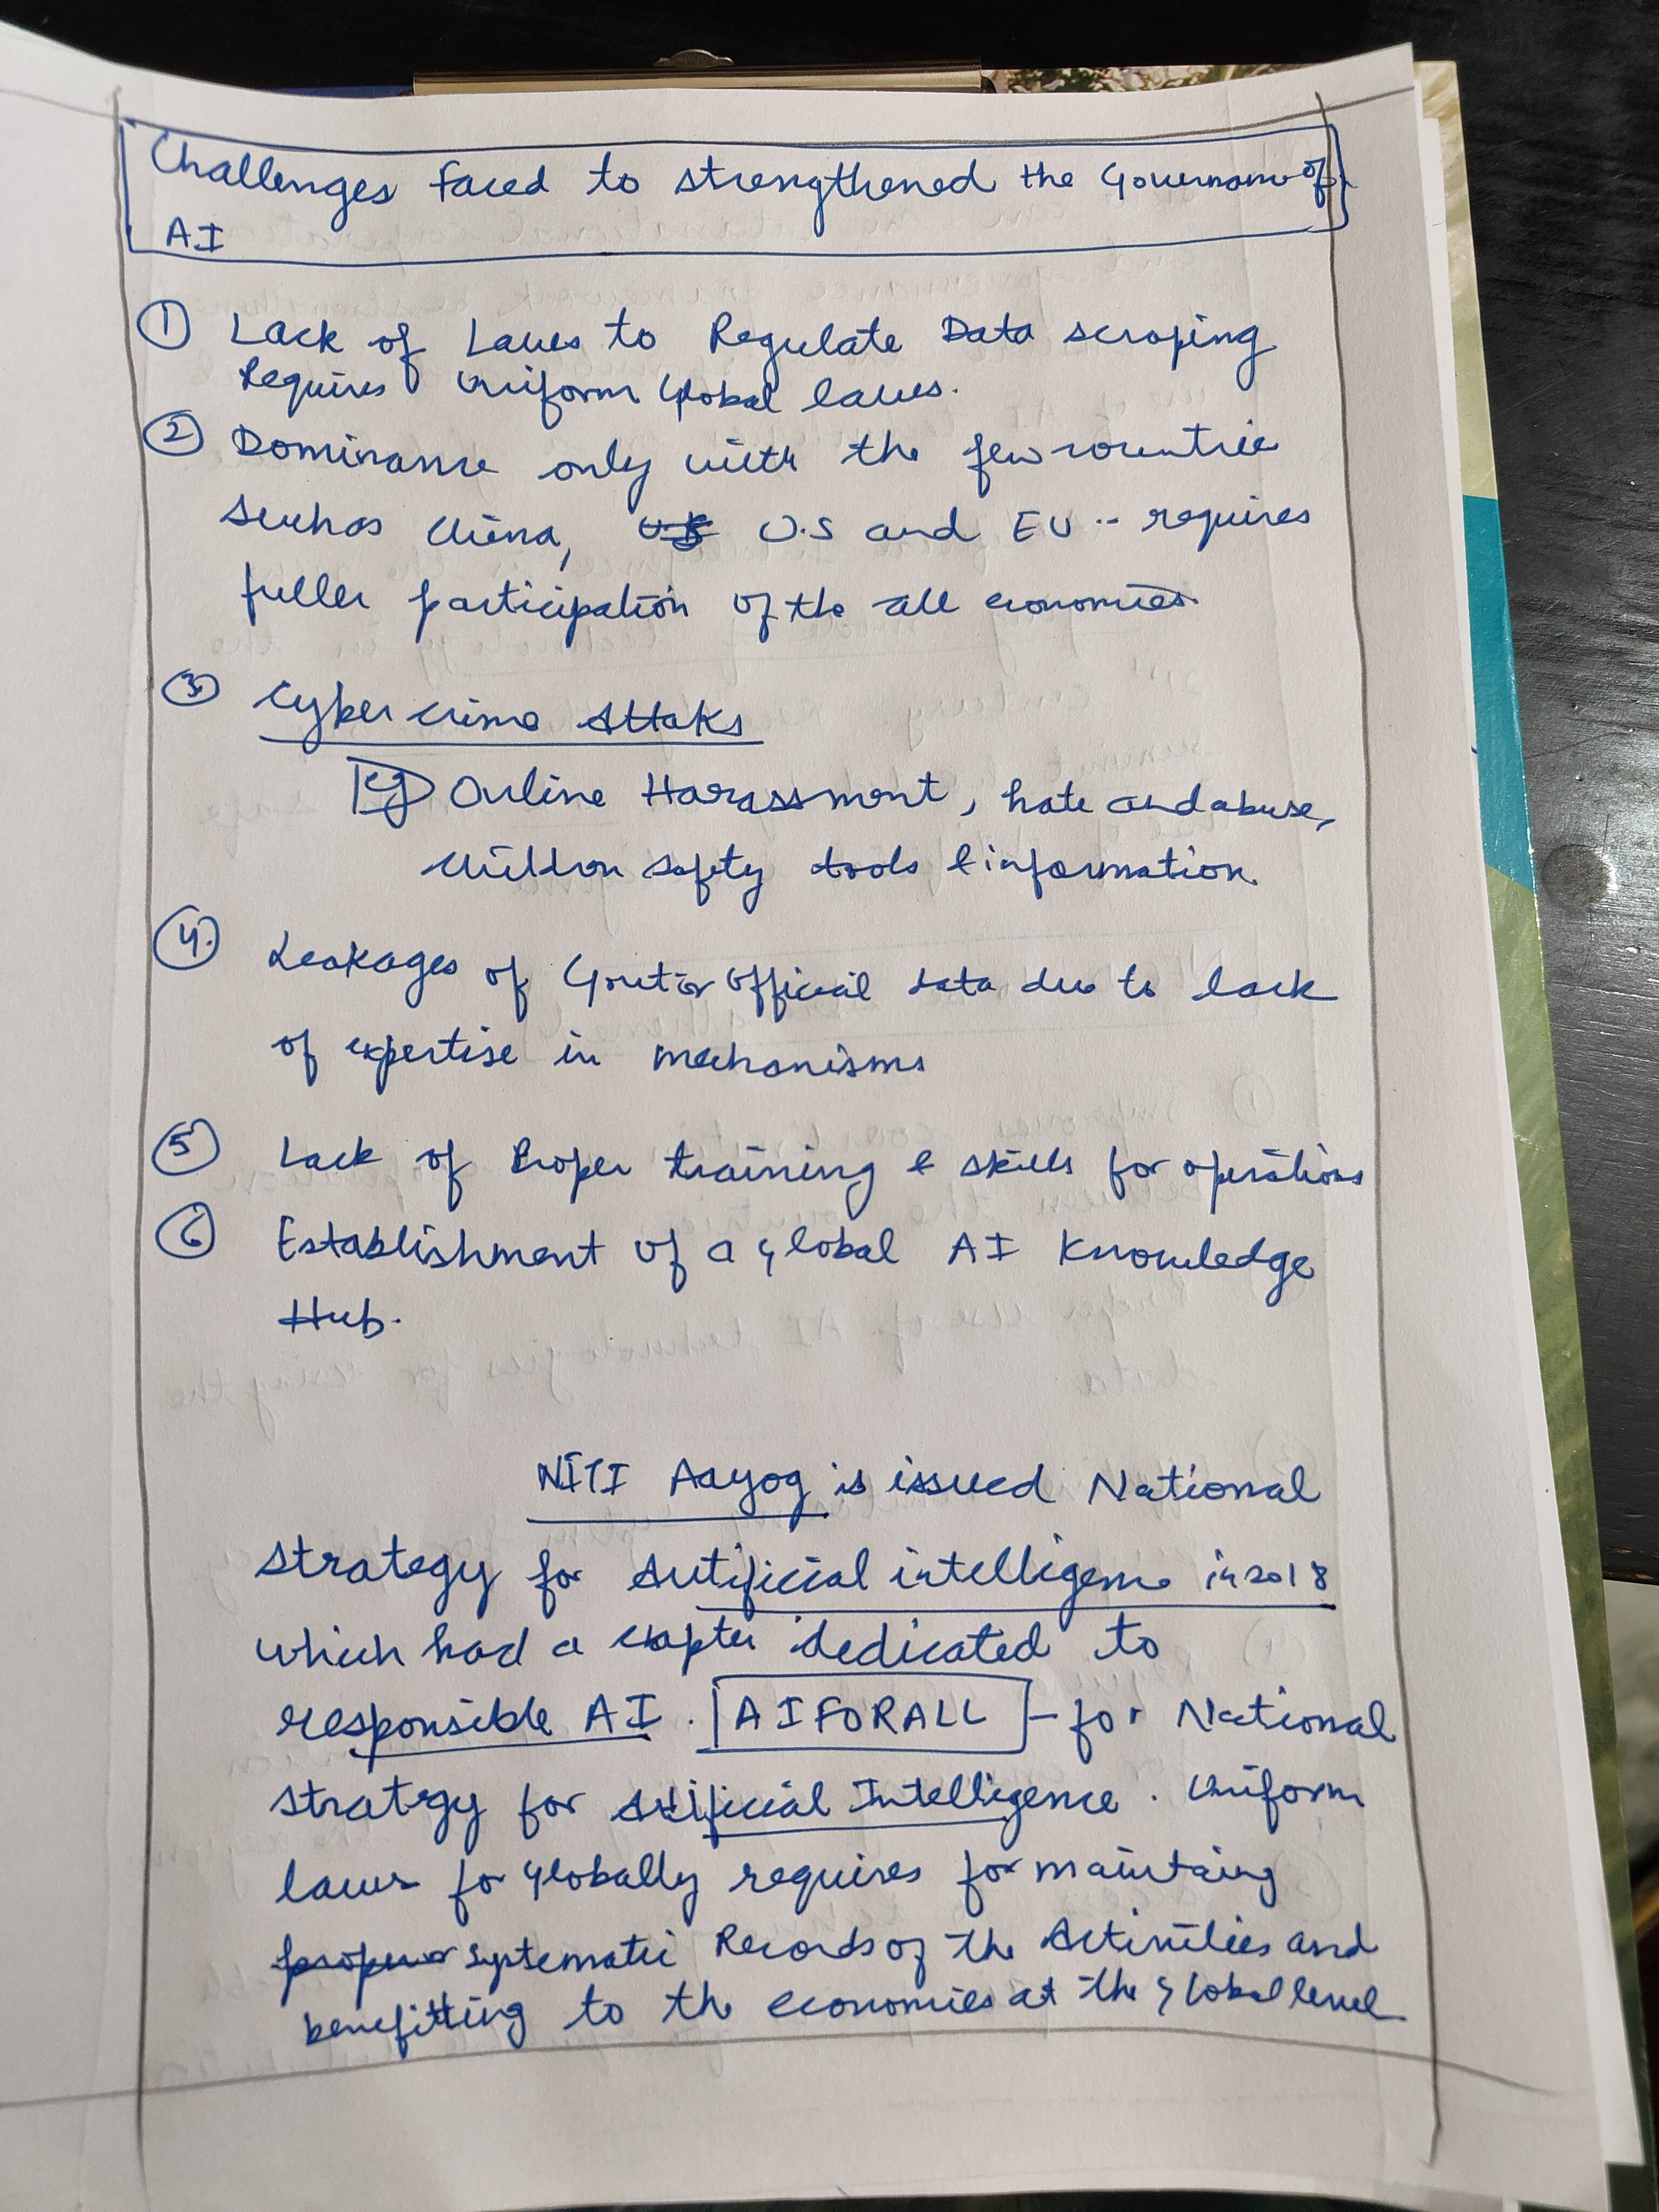 Challenges faced to strengthened the Governance of
AI
① Lack of Laws to Regulate Data scraping
Requires Uniform Global laws.
② Dominance only with the few countries
such as China, U.S and EU -- requires
fuller participation of the all economies.
③ Cyber crime Attaks
Eg Online Harassment, hate and abuse,
Children safety tools & information.
④. Leakages of Govt or Official data due to lack
of expertise in mechanisms
⑤ Lack of Proper training & skills for operations
⑥ Establishment of a global AI Knowledge
Hub.
NITI Aayog is issued National
strategy for Artificial intelligence in 2018
which had a chapter dedicated to
responsible AI. AIFORALL - for National
strategy for Artificial Intelligence. Uniform
laws for Globally requires for maintaing
systematic Records of the Activities and
benefitting to the economies at the global level